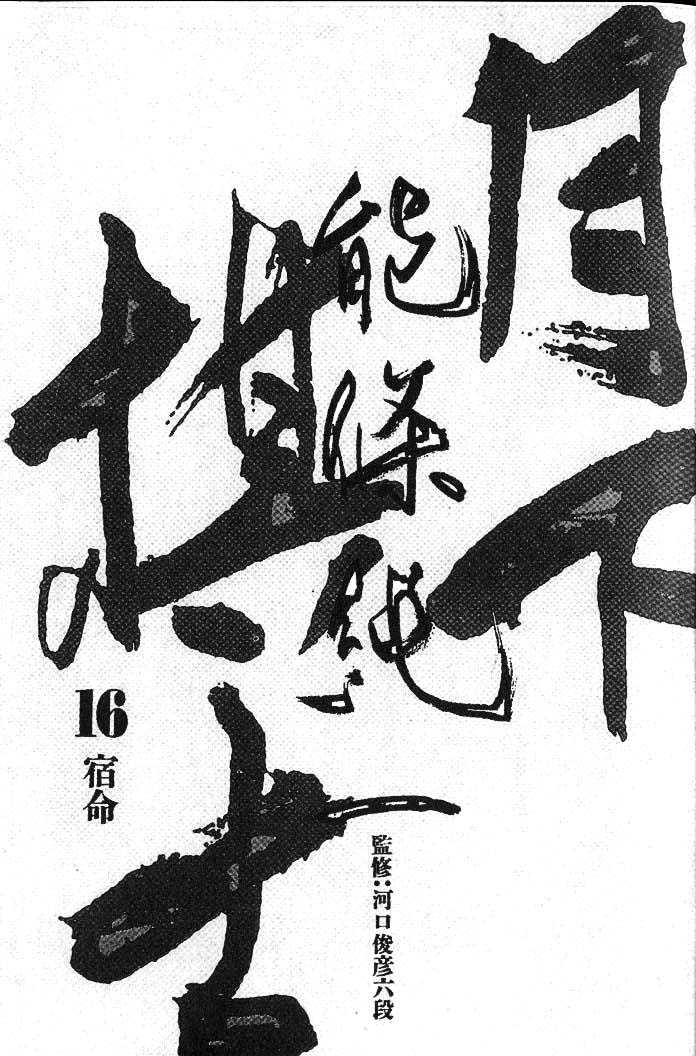 月下
棋士
の
能條純一
16
宿命
監修：河口俊彦六段